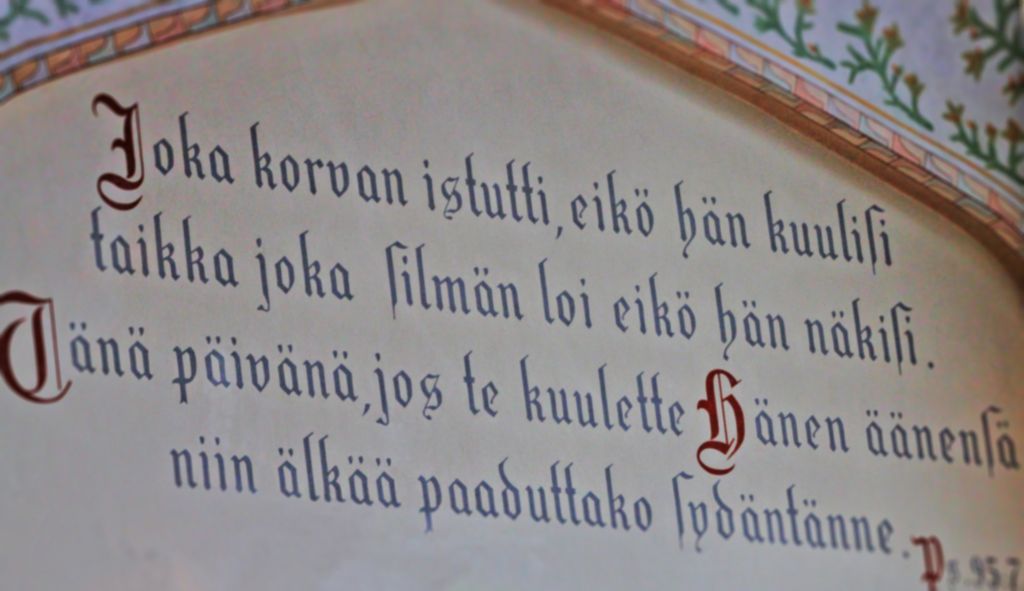 Joka korvan istutti, eikö hän kuuliſi
taikka joka ſilmän loi eikö hän näkiſi.
Tänä päivänä, jos te kuulette Hänen äänenſä
niin älkää paaduttako ſydäntänne.
Ps. 95 7